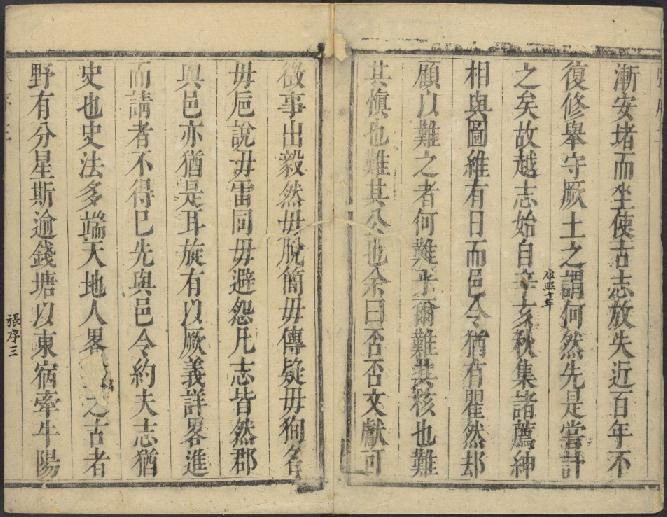 漸安堵而坐使古志放失近百年不
復修舉守厥土之謂何然先是嘗計
之矣故越志始自辛亥秋集諸薦紳
康熙十年
相與圖維有日而邑令猶有瞿然却
顧以難之者何難乎爾難其核也難
其慎也難其公也余曰否否文獻可
徵事出毅然毋脫簡毋傳疑毋狥名
毋巵說毋雷同毋避怨凡志皆然郡
與邑亦猶是耳旋有以厥義詳畧進
而請者不得已先與邑令約夫志猶
史也史法多端天地人畧之古者
野有分星斯逾錢塘以東宿牽牛陽
張序三